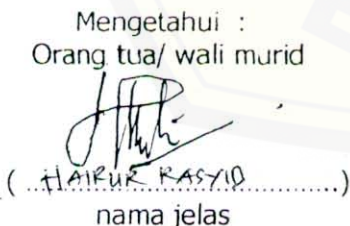 Mengetahui :
Orang tua/ wali murid
( HAIRUR RASYID )
nama jelas